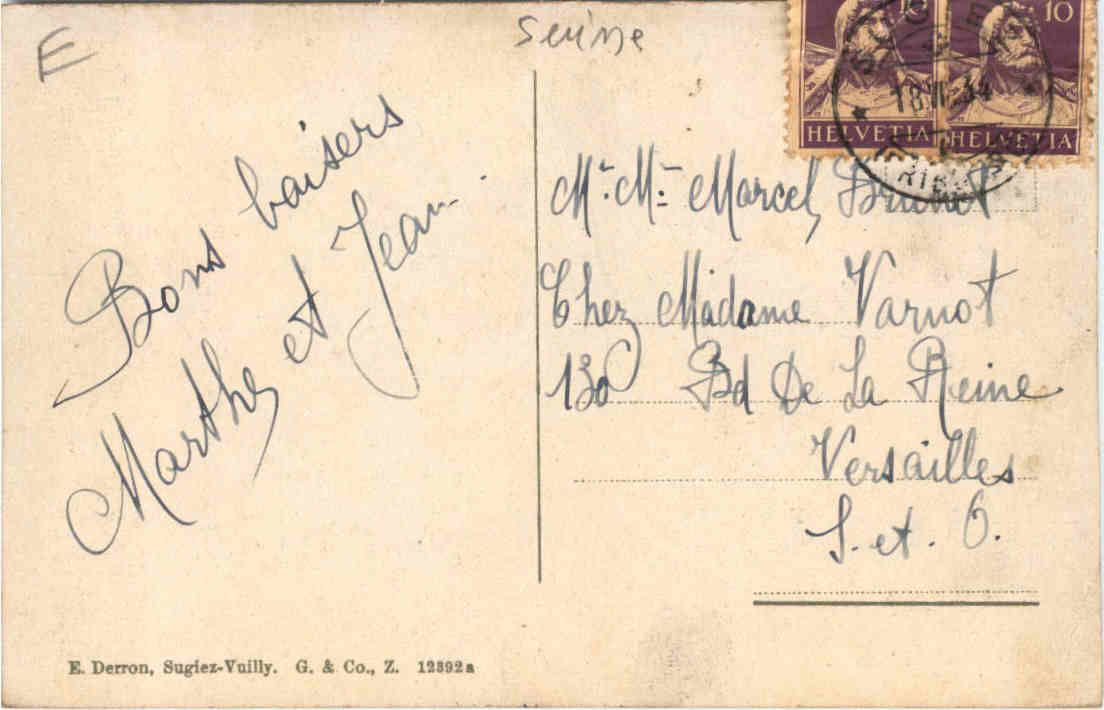 E
Suisse
10
10
HELVETIA
HELVETIA
18.VII.34
Bons baisers
Marthe et Jean.
Mr. Me. Marcel
Chez Madame Varnot
130 Bd De La Reine
Versailles
S. et. O.
E. Derron, Sugiez-Vuilly. G. & Co., Z. 12392a